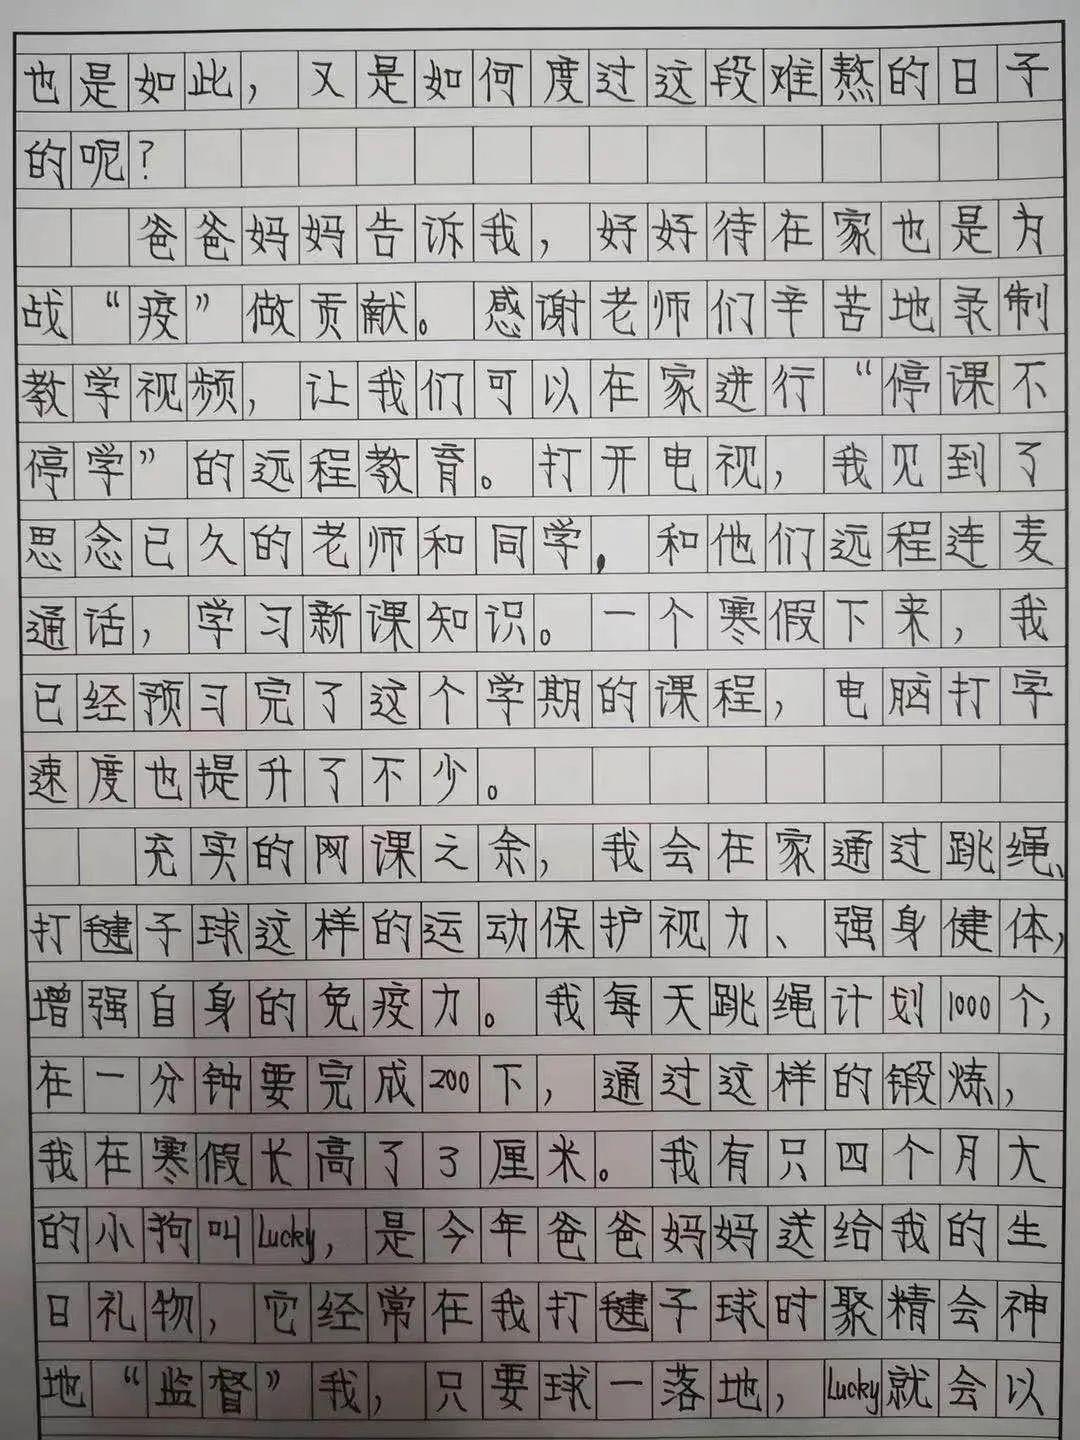 也是如此，又是如何度过这段难熬的日子
的呢？
爸爸妈妈告诉我，好好待在家也是为
战“疫”做贡献。感谢老师们辛苦地录制
教学视频，让我们可以在家进行“停课不
停学”的远程教育。打开电视，我见到了
思念已久的老师和同学，和他们远程连麦
通话，学习新课知识。一个寒假下来，我
已经预习完了这个学期的课程，电脑打字
速度也提升了不少。
充实的网课之余，我会在家通过跳绳、
打毽子球这样的运动保护视力、强身健体，
增强自身的免疫力。我每天跳绳计划1000个，
在一分钟要完成200下，通过这样的锻炼，
我在寒假长高了3厘米。我有只四个月大
的小狗叫Lucky，是今年爸爸妈妈送给我的生
日礼物，它经常在我打毽子球时聚精会神
地“监督”我，只要球一落地，Lucky就会以